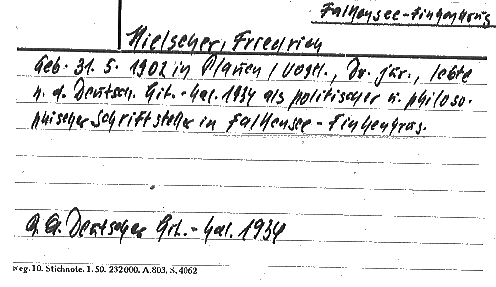 Falkensee-Finkenkrug
Hielscher, Friedrich
Geb. 31. 5. 1902 in Plauen / Vogtl., Dr. jur., lebte
n. d. Deutsch. Lit.-Kal. 1934 als politischer u. philoso-
phischer Schriftsteller in Falkensee-Finkenkrug.
Deutscher Lit.-Kal. 1934
Reg. 10. Stichnote. I. 50. 232000. A. 803. S. 4062